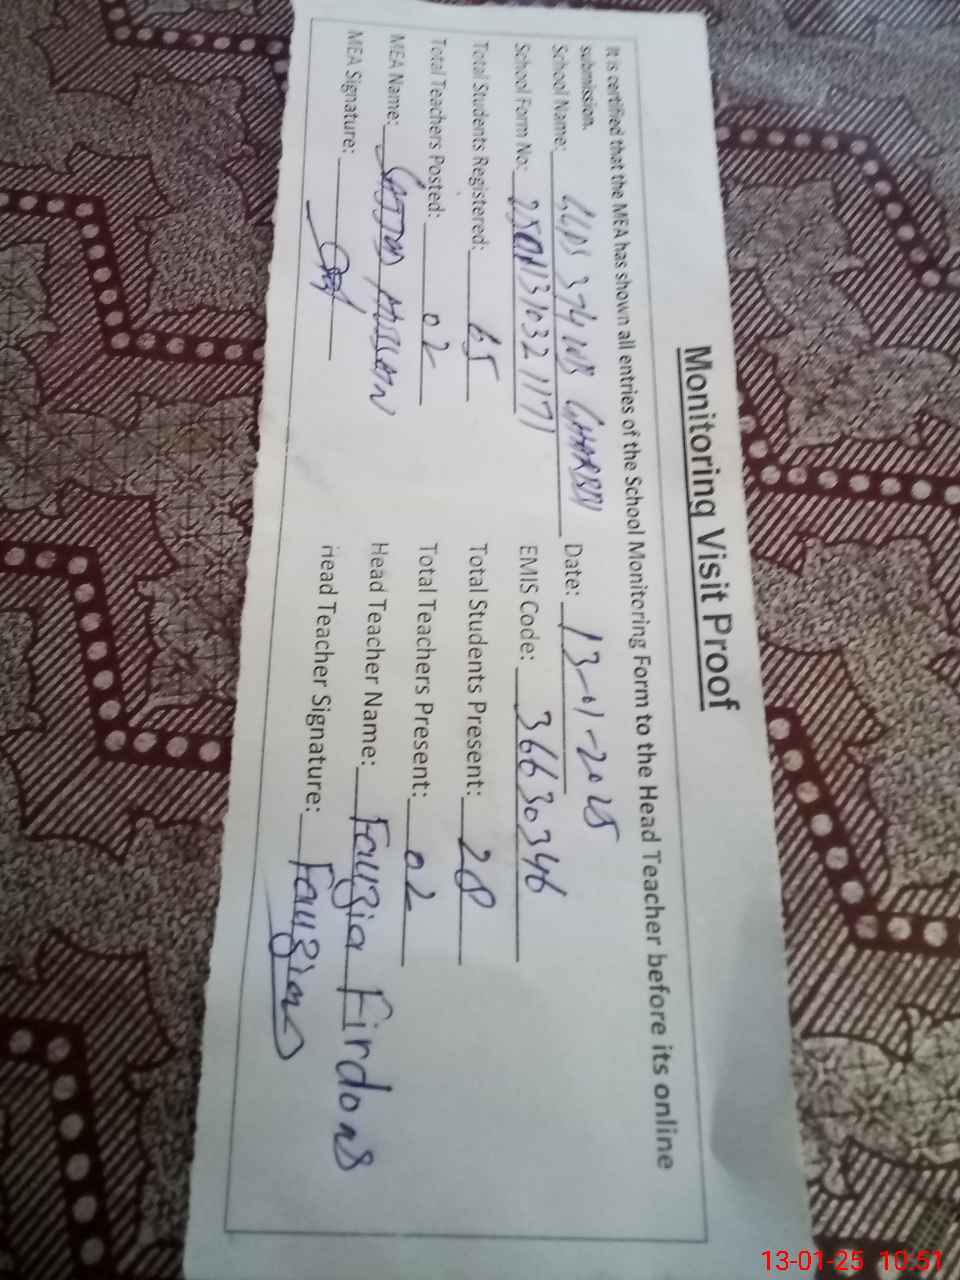 Monitoring Visit Proof
It is certified that the MEA has shown all entries of the School Monitoring Form to the Head Teacher before its online
submission.
School Name: 374 WB GHARBI Date: 13-01-2025
School Form No: EMIS Code: 36630346
Total Students Registered: 65 Total Students Present: 28
Total Teachers Posted: 02 Total Teachers Present: 02
MEA Name: Head Teacher Name: Fauzia Firdous
MEA Signature: Head Teacher Signature:
13-01-25 10:51